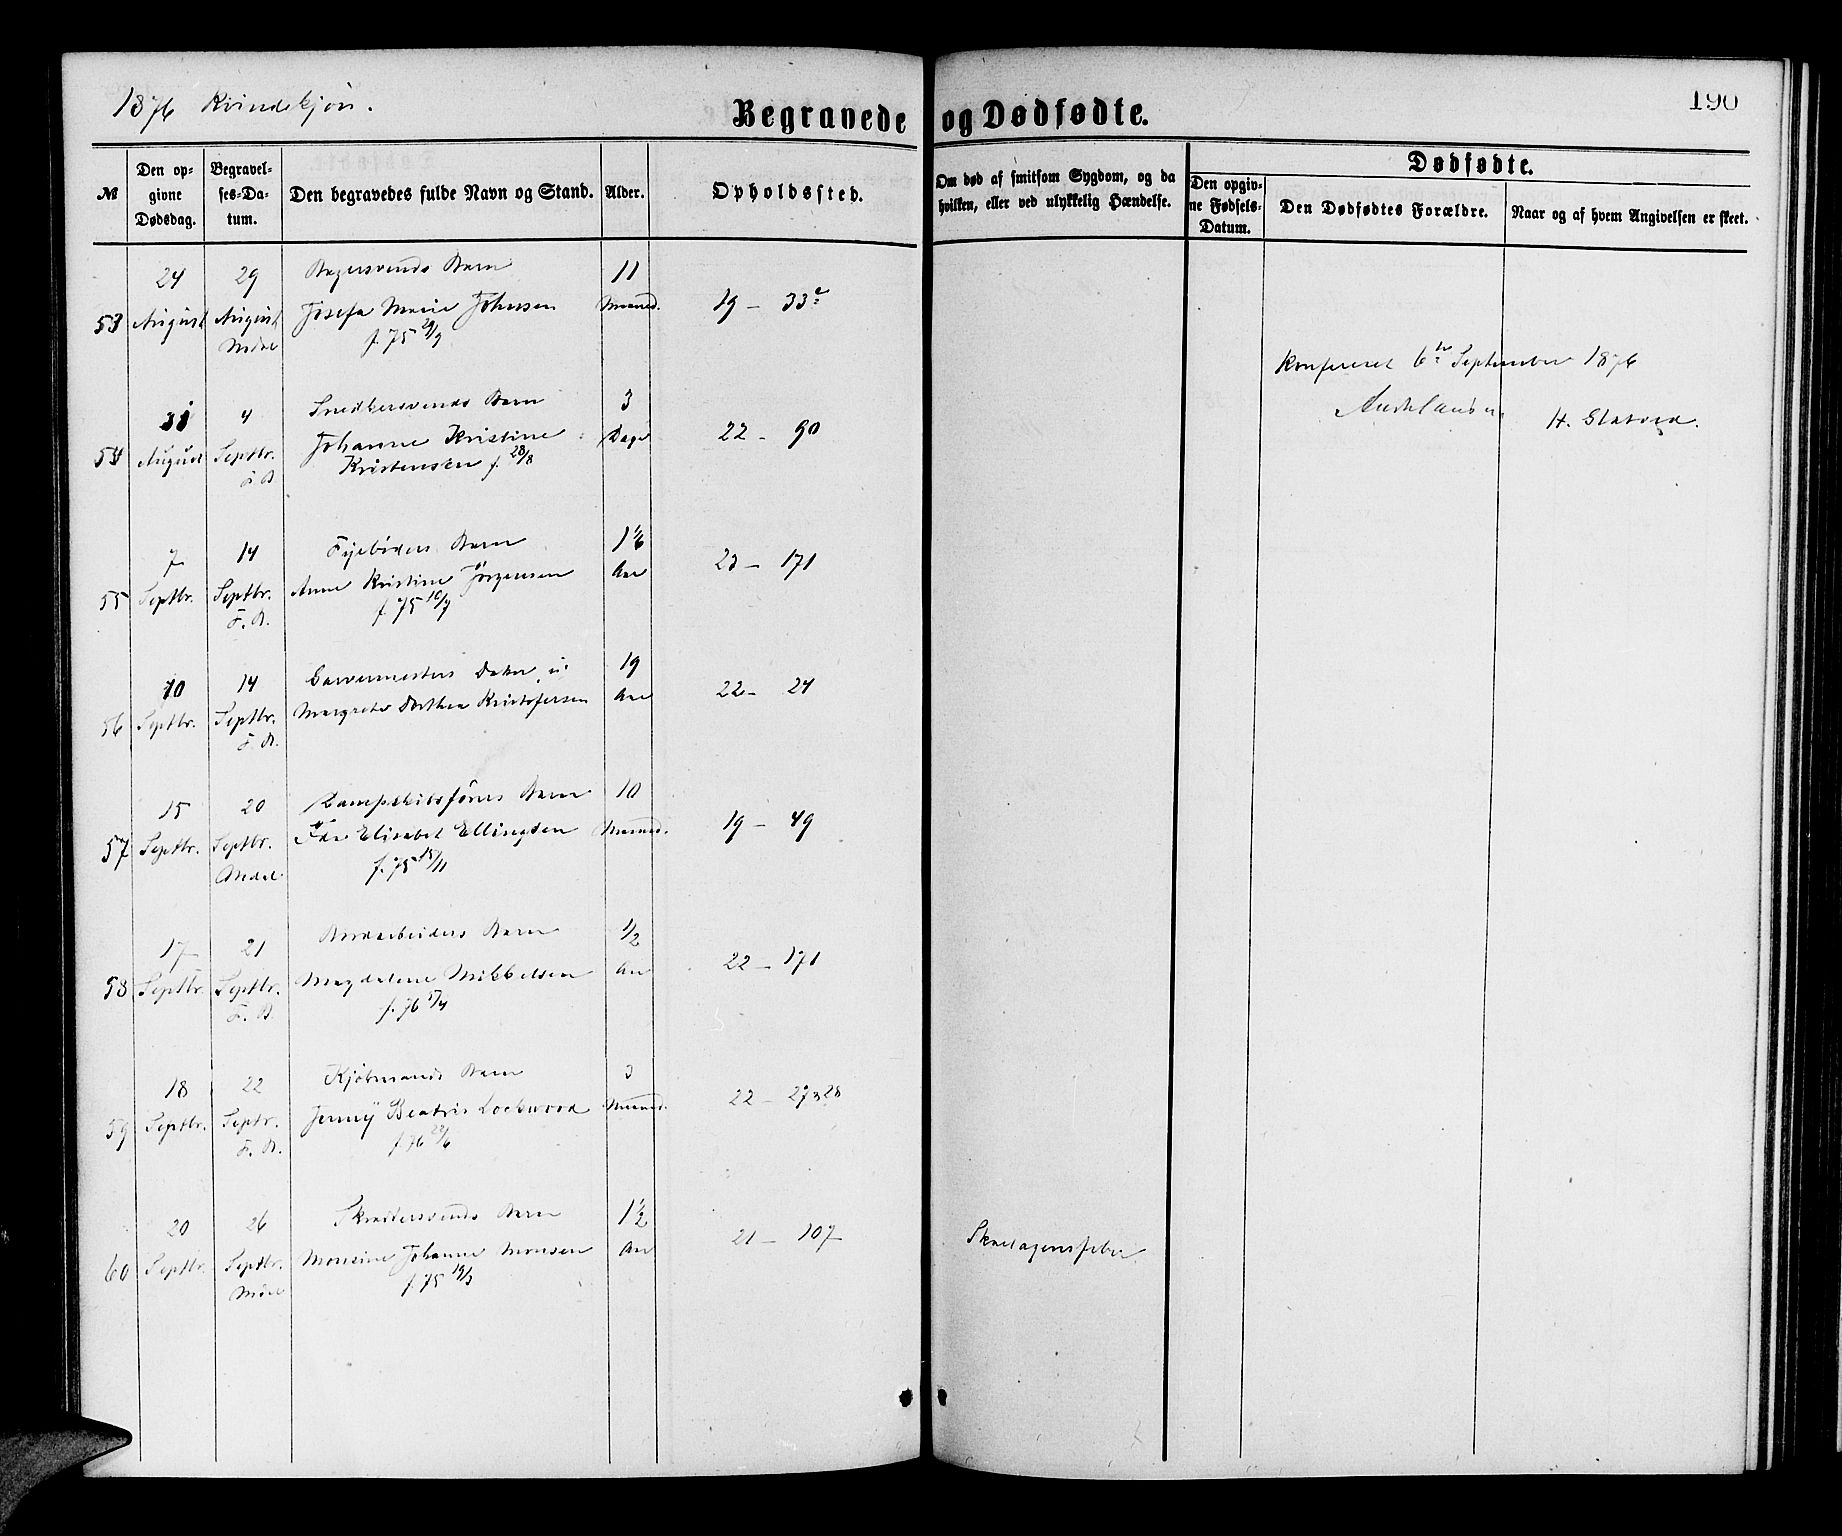 1876 Kvindekjøn.
190
Begravede og Dødfødte.
№
Den op-
givne
Dødsdag.
Begravel-
ses-Da-
tum.
Den begravedes fulde Navn og Stand.
Alder.
Opholdssted.
Om død af smitsom Sygdom, og da
hvilken, eller ved ulykkelig Hændelse.
Dødfødte.
Den opgiv-
ne Fødsels-
Datum.
Den Dødfødtes Forældre.
Naar og af hvem Angivelsen er skeet.
24 29 Bagersvends Barn 11
53 August August Josefa Marie Johnsen Maaned. 19 – 33
f. 75 29/9
Konfereret 6te September 1876
31 4 Snedkersvends Barn 3
54 August Septbr. Johanne Kristine Dage 22 – 90
Kristensen f. 28/8
7 14 Barn 1 1/6
55 Septbr. Septbr. Anne Kristine Jørgensen Aar 23 – 171
F. B. f. 75 10/7
10 14 Garvermesters Datter 19
56 Septbr. Septbr. Margrete Dorthea Kristofersen Aar 22 – 24
F. B.
15 20 Dampskibsførers Barn 10
57 Septbr. Septbr. Ida Elisabet Ellingsen Maaned. 19 – 49
f. 75 15/11
17 21 Bordarbeiders Barn 1/2
58 Septbr. Septbr. Magdalene Mikkelsen Aar 22 – 171
F. B. f. 76 17/4
18 22 Kjøbmands Barn 3
59 Septbr. Septr. Jenny Beatris Lockwood Maaned. 22 – 27 28
F. B. f. 76 22/6
20 26 Skrædersvends Barn 1 1/2
60 Septbr. Septbr. Monsine Johanne Monsen Aar 21 – 107 Skarlagensfeber
f. 75 19/3